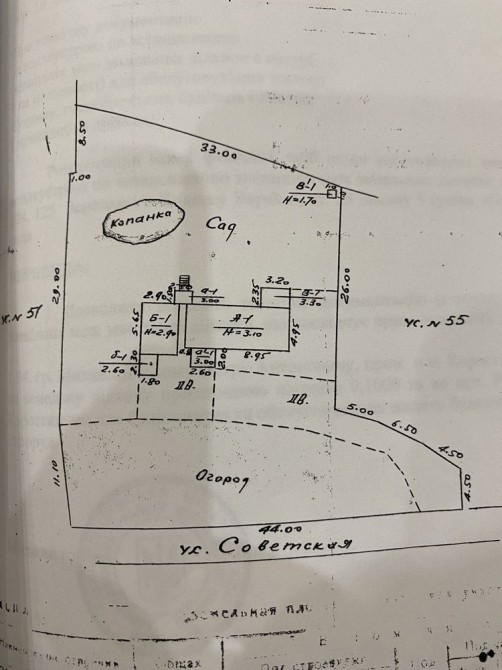 8.50
33.00
1.00
В-1
Н=1.70
Копанка
Сад
29.00
26.00
3.20
2.90
а-1
3.00
2.35
В-Т
3.30
ус. № 55
Б-1
Н=2.90
5.65
А-1
Н=3.10
4.95
б-1
2.60
2.30
1.80
а-1
3.00
2.00
2.60
8.95
ДВ.
ДВ.
5.00
6.50
4.50
4.50
11.10
Огород
44.00
ул. Советская